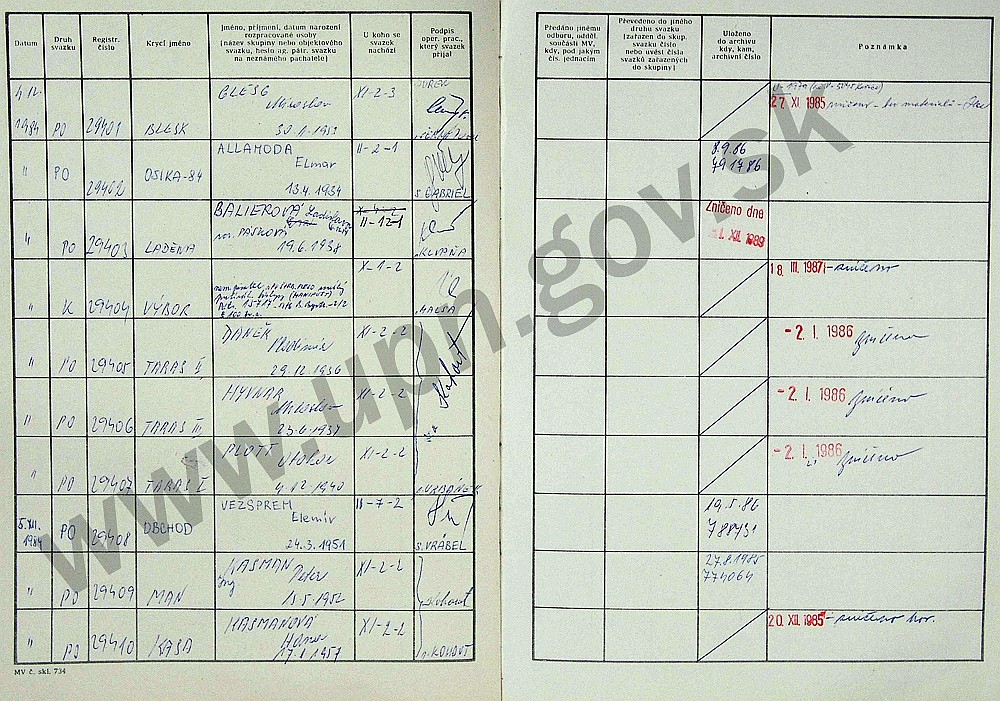 Datum
Druh
svazku
Registr.
číslo
Krycí jméno
Jméno, příjmení, datum narození
rozpracované osoby
(název skupiny nebo objektového
svazku, heslo ag. pátr. svazku
na neznámého pachatele)
U koho se
svazek
nachází
Podpis
oper. prac.,
který svazek
přijal
Předáno jinému
odboru, odděl.
součásti MV,
kdy, pod jakým
čís. jednacím
Převedeno do jiného
druhu svazku
(zařazen do skup.
svazku číslo
nebo uvést čísla
svazků zařazených
do skupiny)
Uloženo
do archivu
kdy, kam,
archivní číslo
Poznámka
4.12.
1984 PO 29401 BLESK
Miroslav
30.1.1952
XI-2-3
27. XI 1985
" PO 29402 OSIKA-84
ALLAMODA
Elmar
13.4.1934
II-2-1
s. GABRIEL
8.9.86
791786
" PO 29403 LADENA
BALIEROVÁ Ladislava
roz. PÁSKOVÁ
19.6.1938
X-4-2
II-12-1
KLVAŇA
Zničeno dne
XII. 1989
" K 29404 VÝBOR
X-1-2
18. III. 1987 - zničeno
" PO 29405 TARAS II
DANĚK
Vladimír
29.12.1936
XI-2-2
Kohout
- 2. I. 1986 zničeno
" PO 29406 TARAS III
Miroslav
XI-2-2
- 2. I. 1986 zničeno
" PO 29407 TARAS I
PLOTT
Otokar
4.12.1940
XI-2-2
URBÁNEK
- 2. I. 1986 zničeno
5.XII.
1984 PO 29408 OBCHOD
VEZSPREM
Elemír
24.3.1951
III-7-2
s. VRÁBEL
19.5.86
788431
" PO 29409 MAN
KASMAN
Ing Peter
15.5.1952
XI-2-2
Kohout
27.8.1985
774064
" PO 29410 KASA
KASMANOVÁ
XI-2-2
KOHOUT
20. XII. 1985 - zničeno
MV č. skl. 734
www.upn.gov.sk